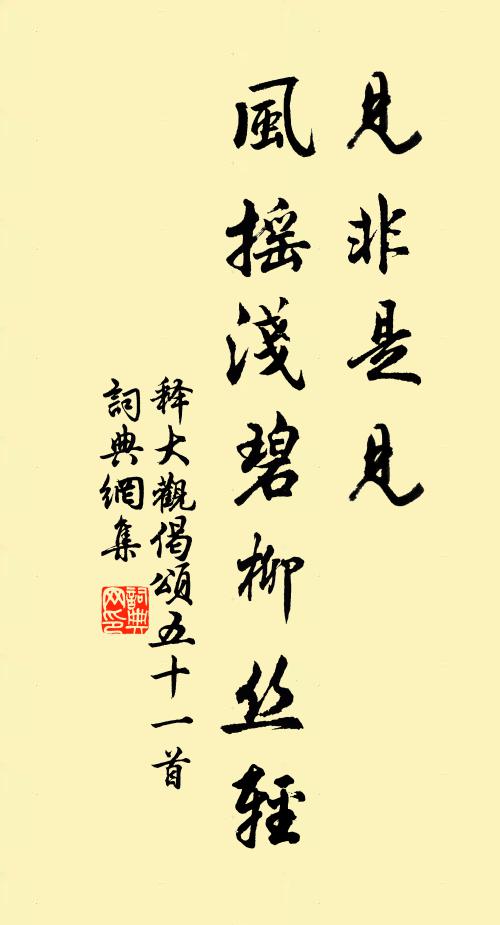 見非是見
風摇淺碧柳丝輕
释大觀偈頌五十一首
詞典網集
詞典网印